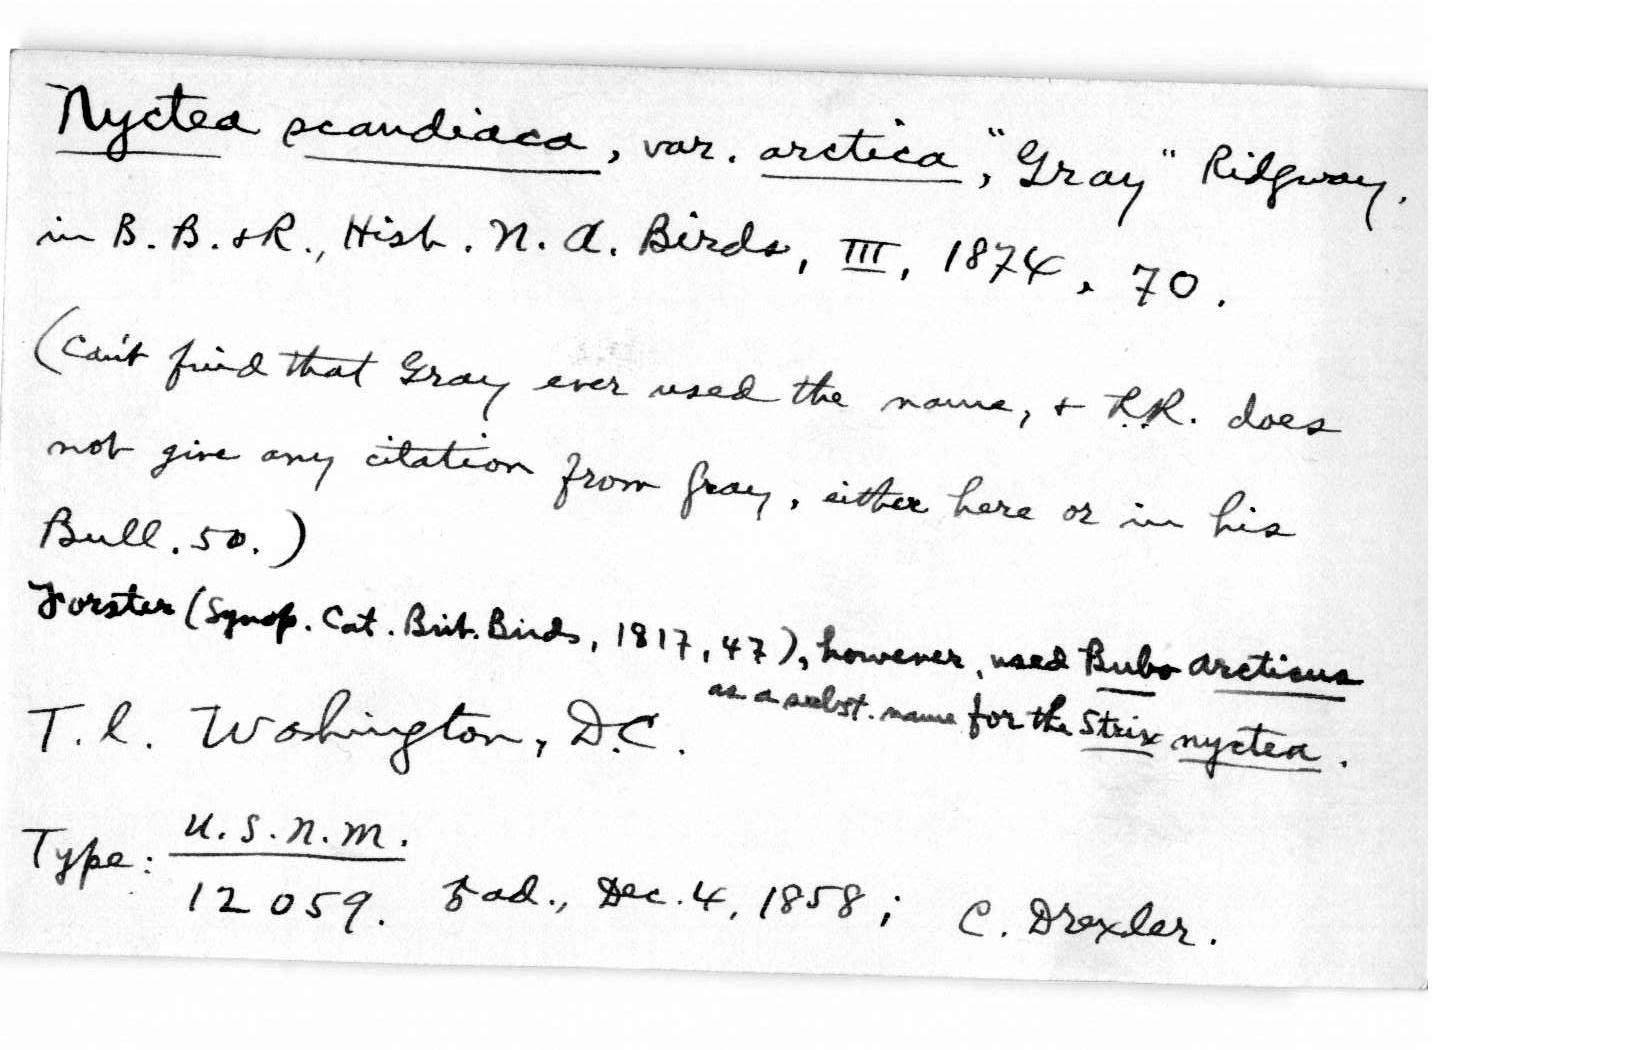 Nyctea scandiaca, var. arctica, "Gray" Ridgway,
in B. B. & R., Hist. N. A. Birds, III, 1874, 70.
(Can't find that Gray ever used the name, & R.R. does
not give any citation from Gray, either here or in his
Bull. 50.)
Forster (Synop. Cat. Brit. Birds, 1817, 47), however, used Bubo arcticus
as a subst. name for the Strix nyctea.
T.l. Washington, D.C.
Type: U.S.N.M.
12059. ad., Dec. 4, 1858; C. Drexler.